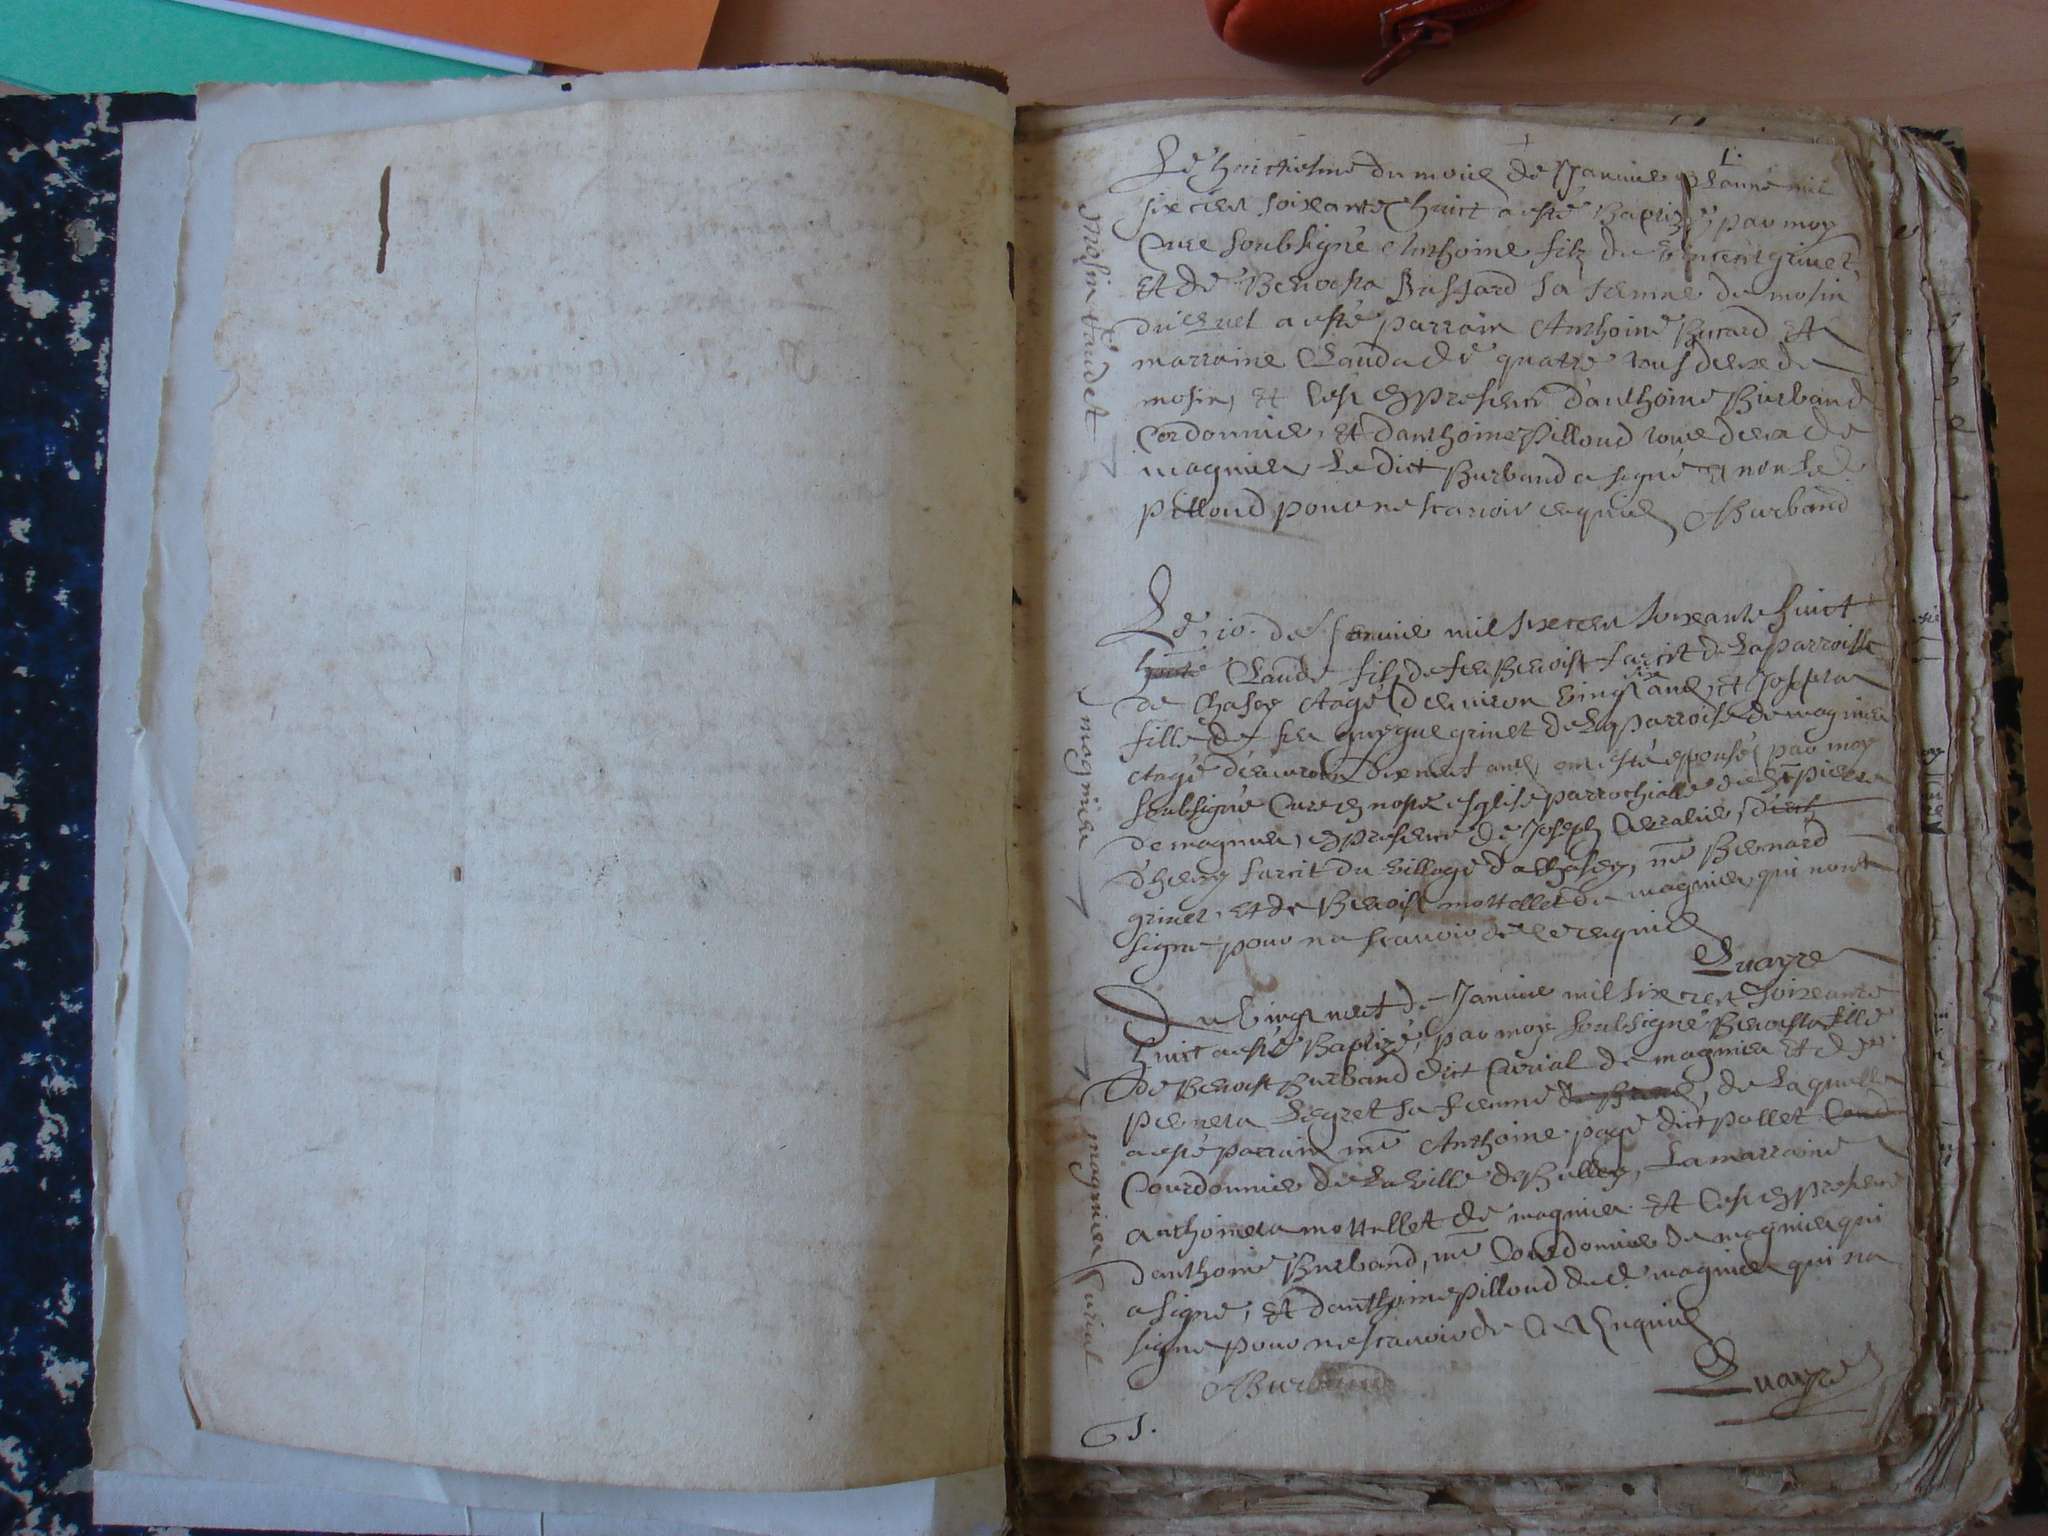 1.
Le huictiesme du mois de Janvier L'année mil
six cent soixante huict a esté Baptizé par moy
Curé soubsigné Anthoine filz de Vincent grinet,
Et de Benoista Bastard sa femme de mosin
duquel a esté parrain Anthoine Burard Et
marraine Clauda de quatre tous deux de
mosin, et c'est en presence d'anthoine Burband
Cordonnier, Et d'anthoine Pilloud tous deux de
magnieu Le dict Burband a signé et non Led.
Pilloud pour ne scavoir enquis ABurband
Mosin
Le 10. de Janvier mil six cent soixante huict
Claude filz de feu Benoist furcit de La parroisse
de Chasey Eagé d'environ vingt six ans, et Josepta
fille de feu grinet de La parroisse de magnieu
Eagé d'environ dixneuf ans, ont esté espousés par moy
soubsigné Curé en nostre esglise parrochialle de St Pierre
de magnieu, en presence de Joseph
furcit du village de Chasey, me Bernard
grinet, Et de Benoist mottellet de magnieu qui n'ont
signé pour ne scavoir de ce enquis
Quayre
magnieu
Du vingt neuf de Janvier mil six cent soixante
huict a esté Baptizé, par moy soubsigné Benoista fille
de Benoist Burband dict Curial de magnieu Et de
perneta Segret sa femme, de Laquelle
a esté parrain me Anthoine page dict pollet
Courdonnier de La ville de Belley, La marraine
anthoineta mottellet de magnieu Et c'est en presence
d'anthoine Burband, me Courdonnier de magnieu qui
a signé, Et d'anthoine Pilloud dud. magnieu qui n'a
signé pour ne scavoir de ce Enquis
ABurband
Quayre
magnieu Curial